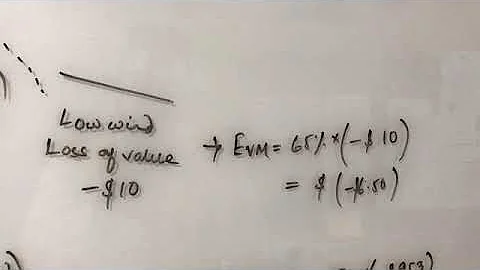 Low wind
Loss of value → EVM = 65% × (-$ 10)
-$10 = $ (-6.50)